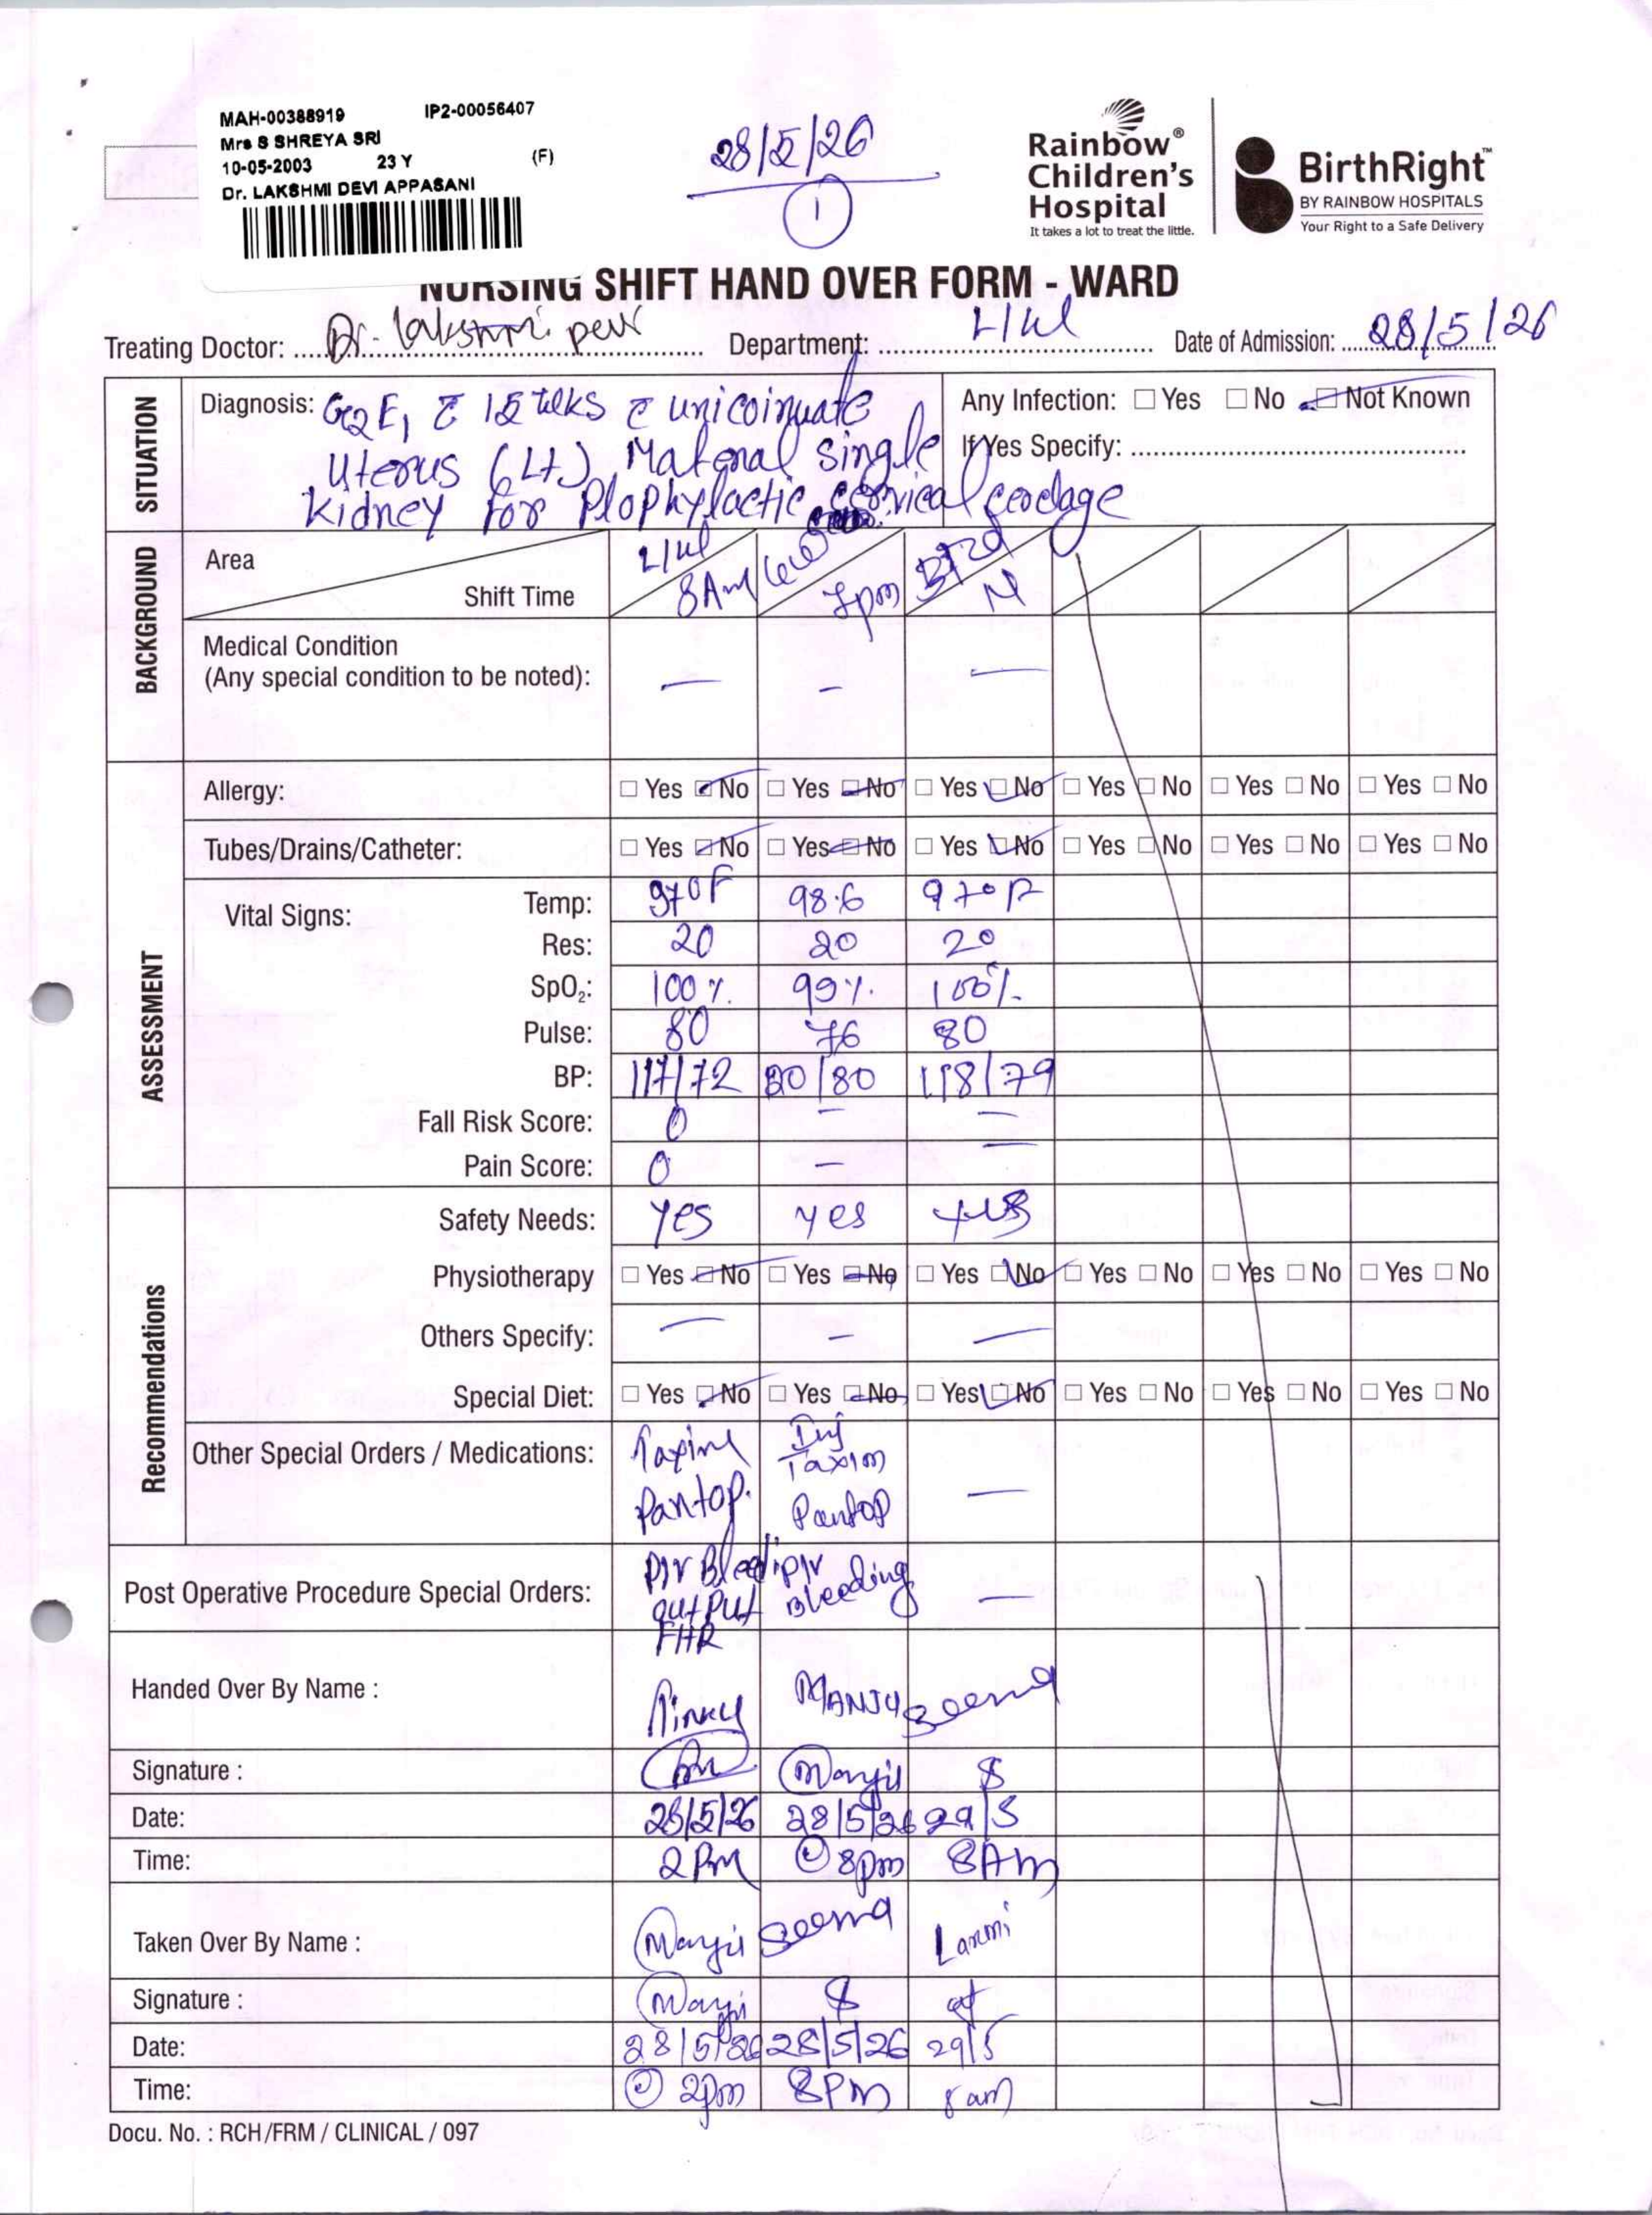 MAH-00388919 IP2-00056407
Mrs S SHREYA SRI
10-05-2003 23 Y (F)
Dr. LAKSHMI DEVI APPASANI
28/5/26
1
Rainbow® Children's Hospital
It takes a lot to treat the little.
BirthRight™
BY RAINBOW HOSPITALS
Your Right to a Safe Delivery
NURSING SHIFT HAND OVER FORM - WARD
Treating Doctor: Dr. Department: Date of Admission: 28/5/26
SITUATION
Diagnosis: G2E1 wks unicoinuate
Uterus (Lt) Maternal single
kidney for Plophylactic cervical cerclage
Any Infection: Yes No Not Known
If Yes Specify:
BACKGROUND
Area
Shift Time 8Am N
Medical Condition
(Any special condition to be noted): — — —
ASSESSMENT
Allergy: Yes No Yes No Yes No Yes No Yes No Yes No
Tubes/Drains/Catheter: Yes No Yes No Yes No Yes No Yes No Yes No
Vital Signs:
Temp: 97°F 98.6 97°F
Res: 20 20 20
SpO₂: 100% 99% 100%
Pulse: 80 76 80
BP: 117/72 /80 118/79
Fall Risk Score: 0 — —
Pain Score: 0 — —
Recommendations
Safety Needs: Yes yes yes
Physiotherapy Yes No Yes No Yes No Yes No Yes No Yes No
Others Specify: — — —
Special Diet: Yes No Yes No Yes No Yes No Yes No Yes No
Other Special Orders / Medications: Taxim Inj Taxim —
Pantop. Pantop
Post Operative Procedure Special Orders: P/V Bleedi P/V Bleeding —
output
FHR
Handed Over By Name : Pinky MANJU Seema
Signature : Manju
Date: 28/5/26 28/5/26 29/5
Time: 2PM @ 8pm 8Am
Taken Over By Name : Manju Seema Laxmi
Signature : Manju
Date: 28/5/26 28/5/26 29/5
Time: @ 2pm 8PM 8am
Docu. No. : RCH/FRM / CLINICAL / 097